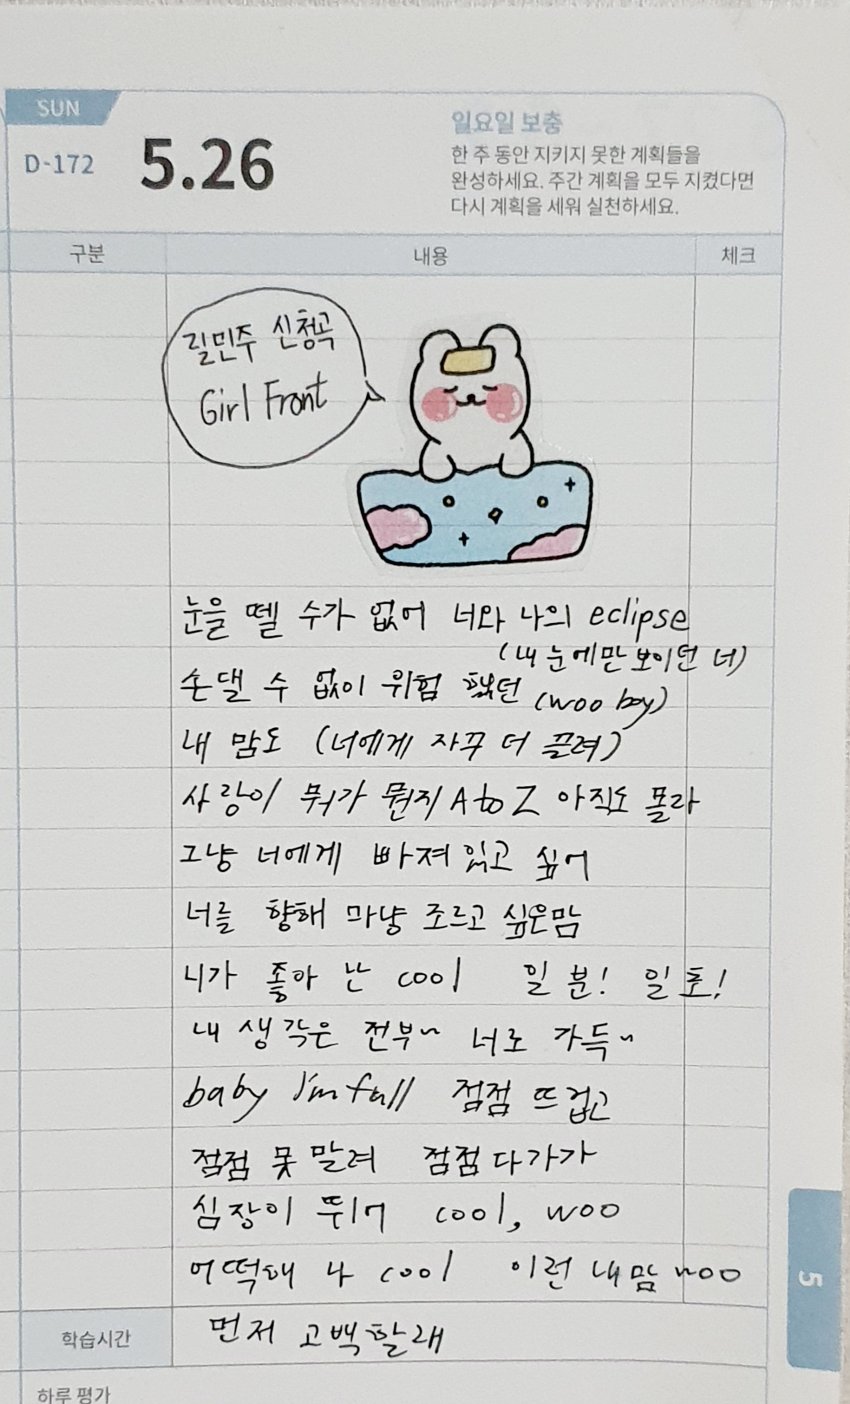 SUN
D-172
5.26
일요일 보충
한 주 동안 지키지 못한 계획들을
완성하세요. 주간 계획을 모두 지켰다면
다시 계획을 세워 실천하세요.
구분 내용 체크
길민주 신청곡
Girl Front
눈을 뗄 수가 없어 너와 나의 eclipse
(내 눈에만 보이던 너)
손댈 수 없이 위험 했던 (woo boy)
내 맘도 (너에게 자꾸 더 끌려)
사랑이 뭐가 뭔지 A to Z 아직도 몰라
그냥 너에게 빠져 있고 싶어
너를 향해 마냥 조르고 싶은맘
니가 좋아 난 cool 일 분! 일 초!
내 생각은 전부~ 너로 가득~
baby I'm full 점점 뜨겁고
점점 못 말려 점점 다가가
심장이 뛰어 cool, woo
어떡해 나 cool 이런 내 맘 woo
학습시간 먼저 고백할래
5
하루 평가